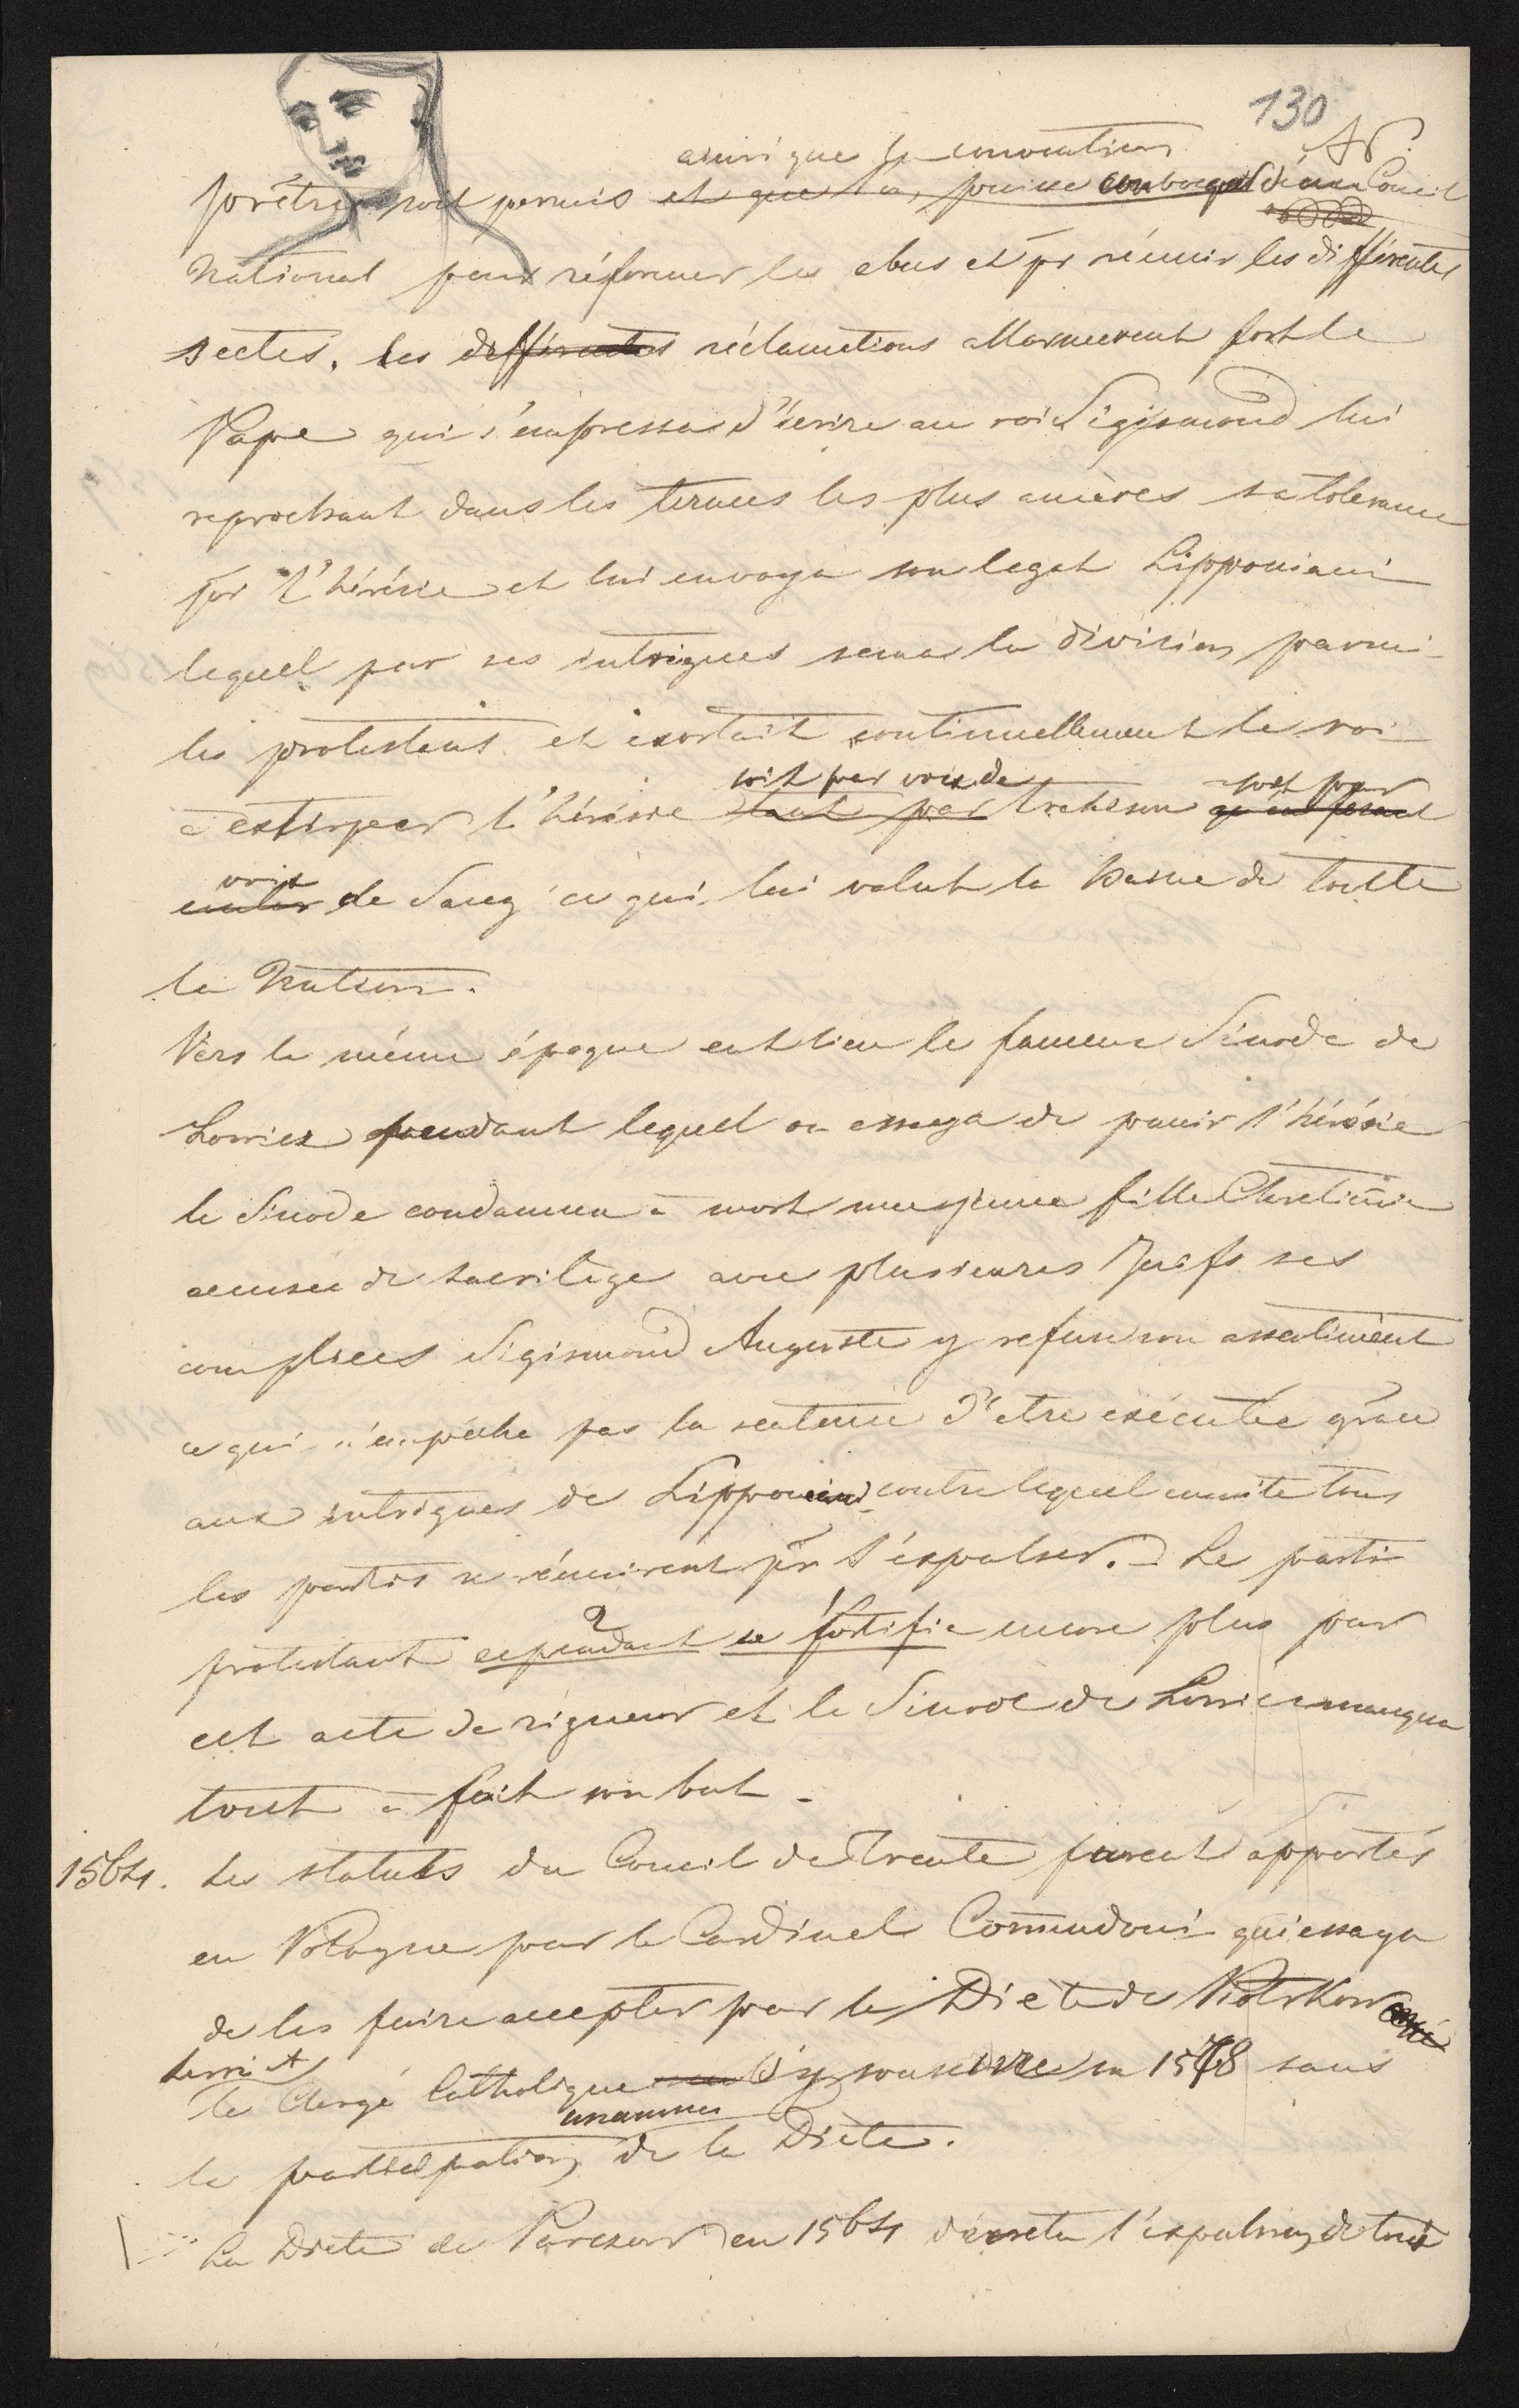 130
ainsi que la convocation
prêtres soit permis et que l'on puisse convoquer d'un Concil
National pour réformer les abus et pr réunir les différentes
sectes. Les différentes réclamations allarmerent fort le
Pape qui s'empressa d'écrire au roi Sigismond lui
reprochant dans les termes les plus amères sa tolerance
pr l'hérésie et lui envoya son legat Lippomani
lequel par ses intrigues sema la division parmi
les protestants et exortait continuellement le roi
soit par voix de soit par
à extirper l'hérésie tant par trahison
voix
de Sang ce qui lui valut la haine de toutte
la Nation.
Vers la même époque eut lieu le fameux Sinode de
Lowicz pendant lequel on essaya de punir l'hérésie
le Sinode condamna à mort une jeune fille Chretiène
accusée de sacrilège avec plusieures Juifs ses
complices Sigismond Auguste y refusa son assentiment
ce qui n'empêcha pas la sentence d'etre exécutée grace
aux intrigues de Lippomani contre lequel ensuite tous
les partis se réunirent pr l'expulser. Le parti
protestant cependant se fortifia encore plus par
cet acte de rigueur et le Sinode de Lowicz manqua
tout à fait son but.
1564. Les statuts du Concil de Trente furent apportés
en Pologne par le Cardinal Commendoni qui essaya
de les faire accepter par la Diète de Piotrkow
le Clergé Catholique y souscrire en 1578 sans
unanime
la participation de la Diète.
La Diete de Parczow en 1564 décreta l'expulsion de tous